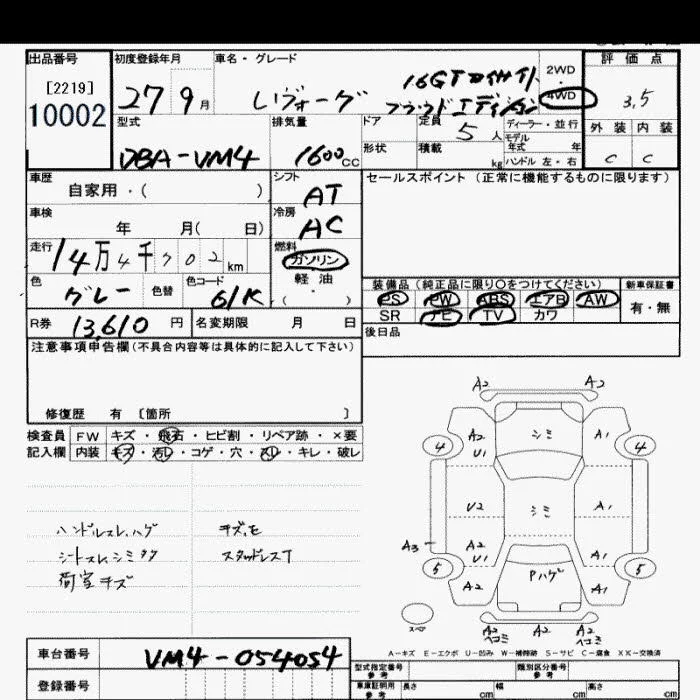 出品番号
[2219]
10002
初度登録年月
27 9 月
車名・グレード
レヴォーグ
16GTアイサイト
プラウドエディション
2WD
・
4WD
評価点
3.5
外装 内装
C C
型式
DBA-VM4
排気量
1600cc
ドア
形状
定員 5 人
積載 kg
ディーラー・並行
モデル
年式 年
ハンドル 左・右
車歴
自家用・( )
シフト
AT
セールスポイント (正常に機能するものに限ります)
車検
年 月( 日)
冷房
AC
走行
14万4千702km
燃料
ガソリン
軽油
・
( )
色
グレー
色替
色コード
61K
装備品(純正品に限り〇をつけてください)
PS PW ABS エアB AW
SR ナビ TV カワ
新車保証書
有・無
R券 13,610 円
名変期限 月 日
後日品
注意事項申告欄(不具合内容等は具体的に記入して下さい)
修復歴 有 〔箇所 〕
検査員
記入欄
FW キズ・飛石・ヒビ割・リペア跡・×要
内装 キズ・汚レ・コゲ・穴・スレ・キレ・破レ
ハンドルスレ、ハゲ
シートスレ、シミ
荷室キズ
キズ、モ
スタッドレスT
A2 A2
A2 シミ A1
U1
4 4
U2 シミ A1
A3 A2 A1
U1
5 5
A2 Pハゲ A1
スペア
A2 A2 A2
ヘコミ ヘコミ
A-キズ E-エクボ U-凹み W-補修跡 S-サビ C-腐食 XX-交換済
車台番号
VM4-054054
登録番号
型式指定番号
参考
類別区分番号
参考
車庫証明用
参考
長さ cm
幅 cm
高さ cm